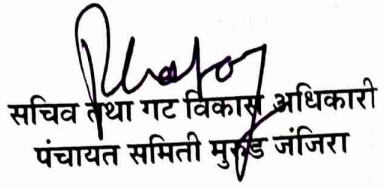 सचिव तथा गट विकास अधिकारी
पंचायत समिती मुरुड जंजिरा